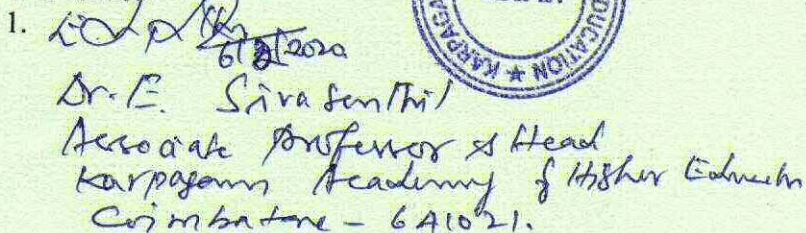 1.
6/2/2020
Dr. E. Sivasenthil
Associate Professor & Head
Karpagam Academy of Higher Education
Coimbatore - 641021.
EDUCATION ★ KARPAGA